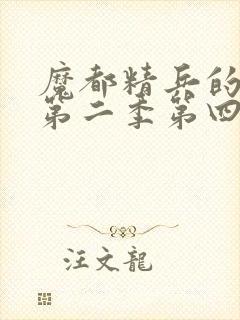 魔都精兵的
第二季第四
汪文龍